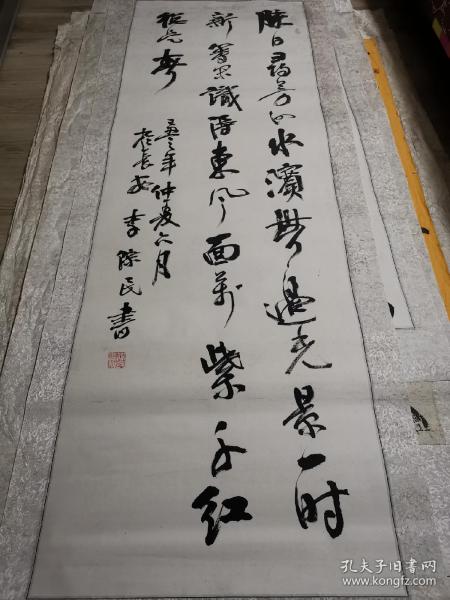 勝日尋芳泗水濱無邊光景一时
新等閒識得東風面萬紫千红
總是春
年仲夏六月
於長安 李 民書
孔夫子旧书网
www.kongfz.com